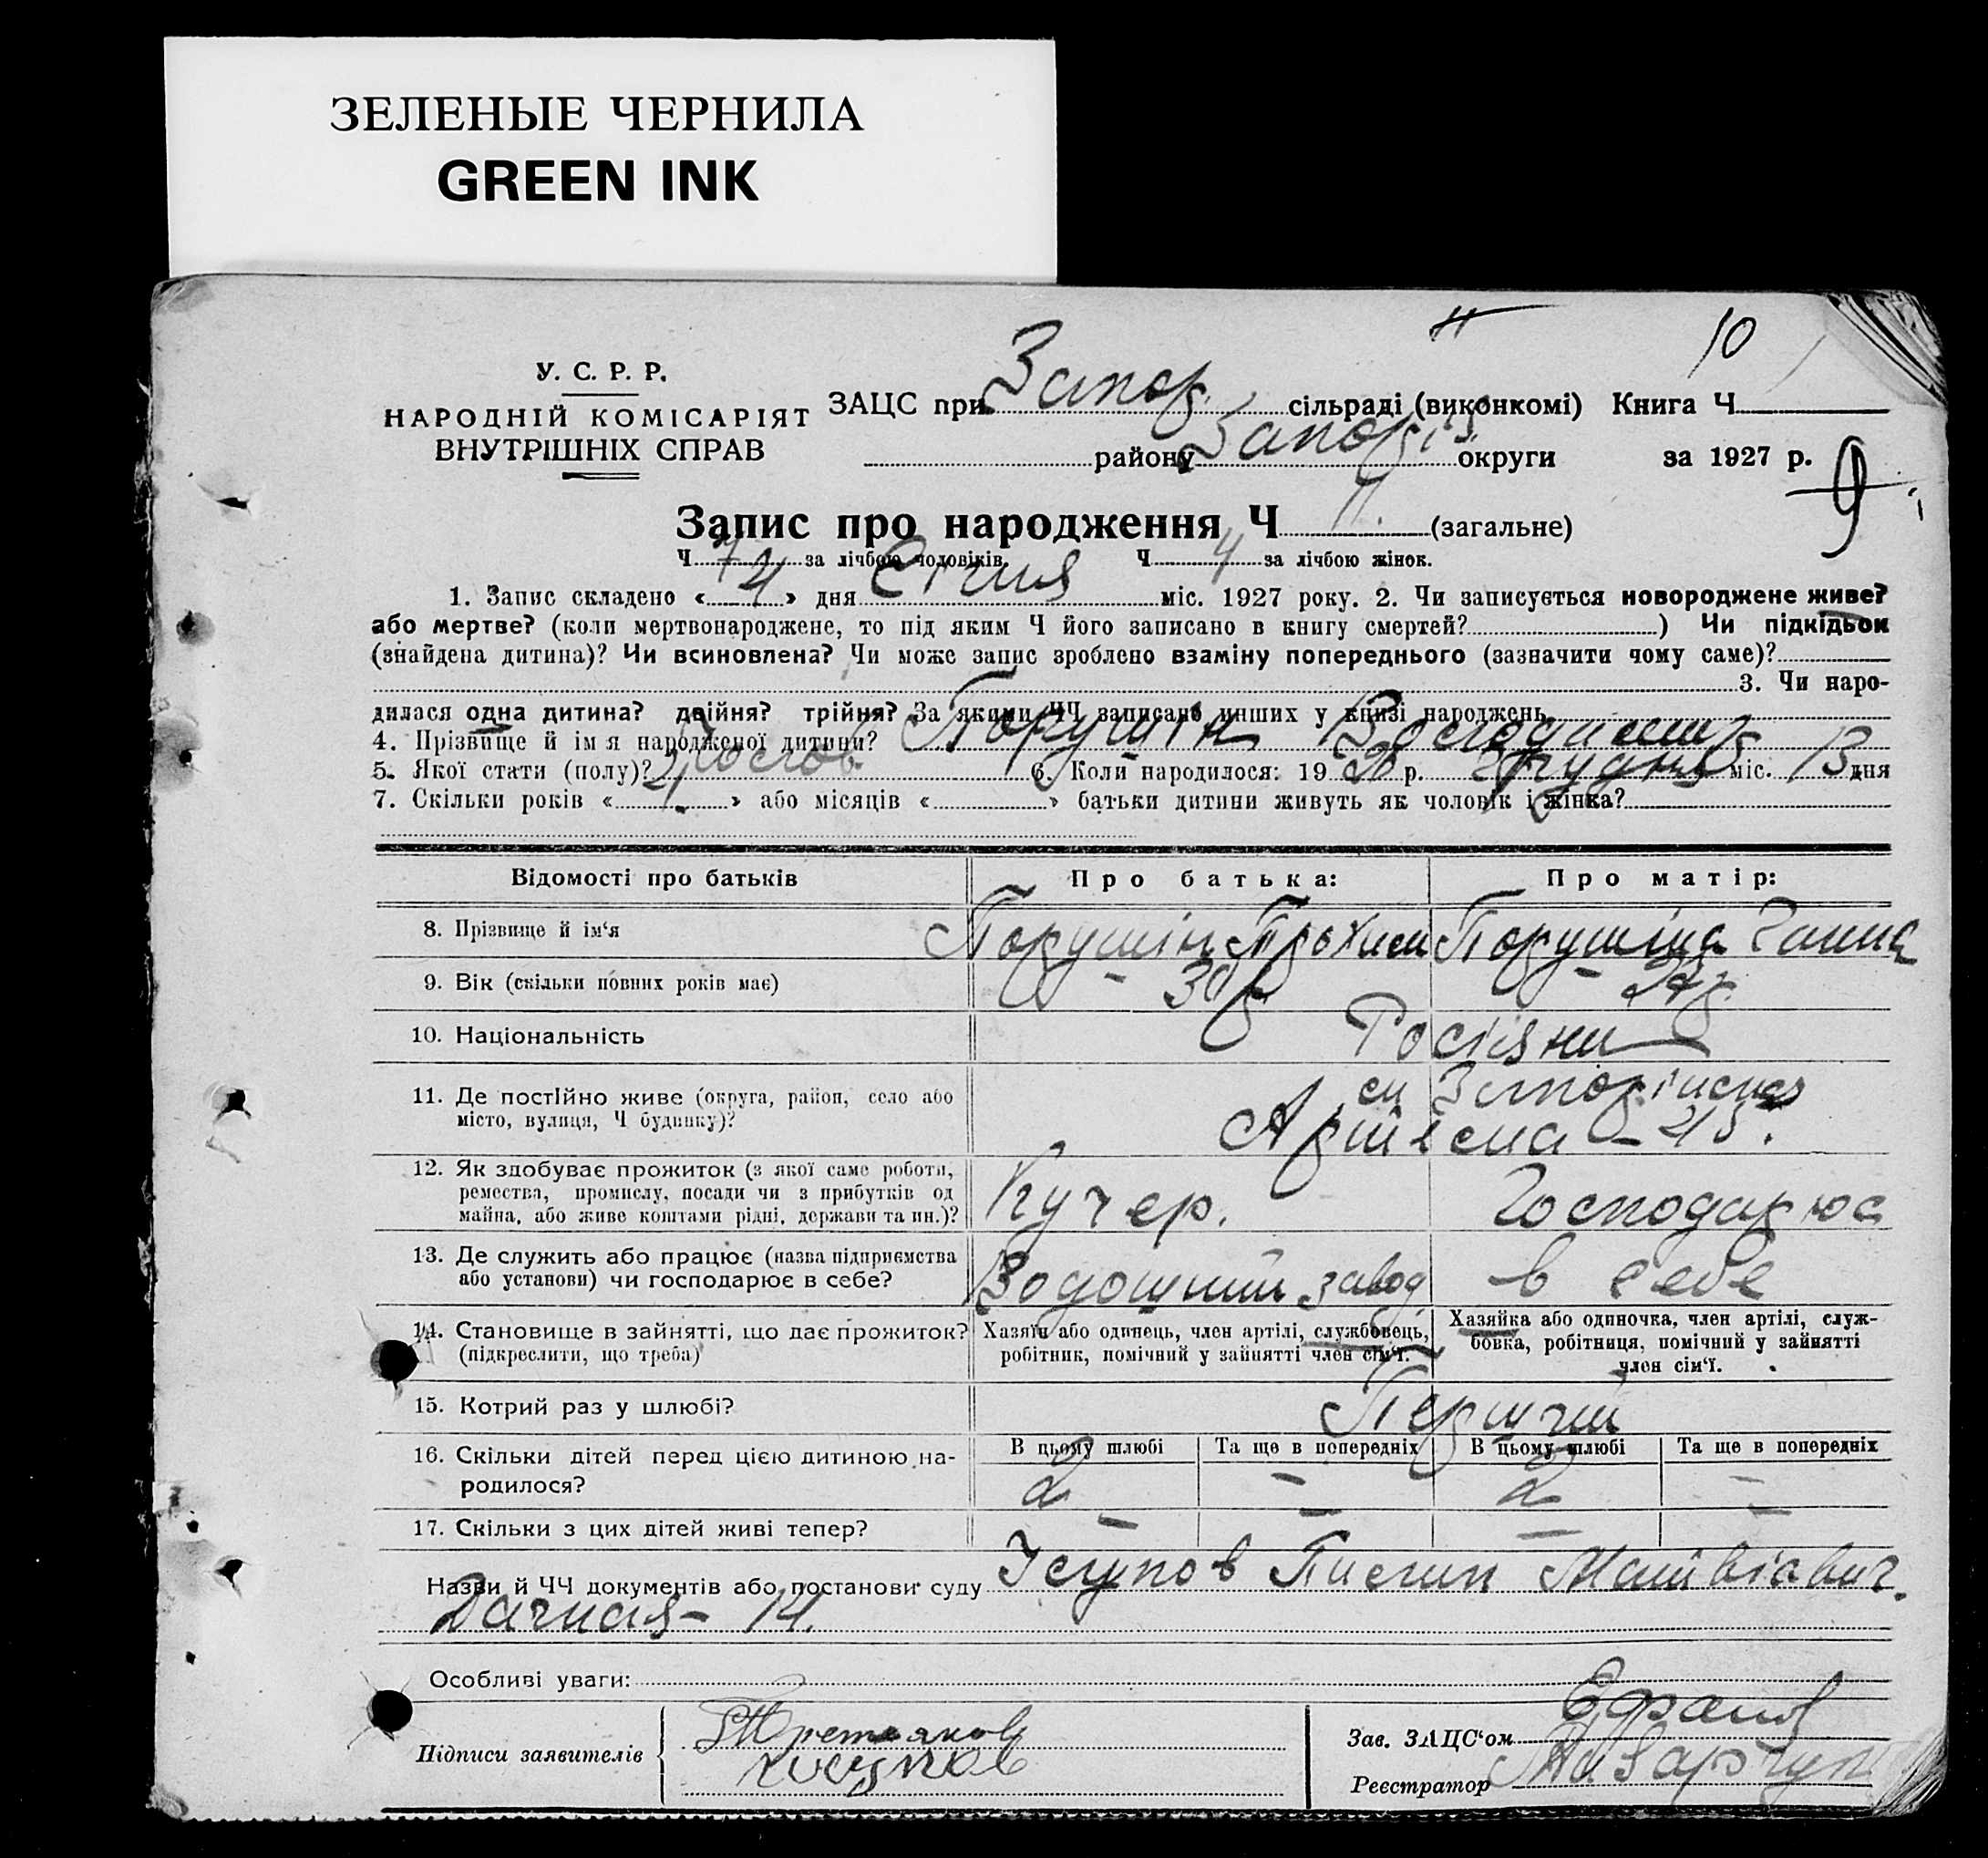 ЗЕЛЕНЫЕ ЧЕРНИЛА
GREEN INK
11
10
У. С. Р. Р.
НАРОДНІЙ КОМІСАРІЯТ
ВНУТРІШНІХ СПРАВ
ЗАЦС при Запор. сільраді (виконкомі) Книга Ч
району Запоріз. округи за 1927 р.
9
Запис про народження Ч 11. (загальне)
Ч 7 за лічбою чоловіків. Ч 4 за лічбою жінок.
1. Запис складено «4» дня Січня міс. 1927 року. 2. Чи записується новороджене живе?
або мертве? (коли мертвонароджене, то під яким Ч його записано в книгу смертей?) Чи підкідьок
(знайдена дитина)? Чи всиновлена? Чи може запис зроблено взаміну попереднього (зазначити чому саме)?
3. Чи наро-
дилася одна дитина? двійня? трійня? За якими ЧЧ записано инших у книзі народжень
4. Прізвище й ім я народженої дитини? Порушін Володимир
5. Якої стати (полу)? Чолов. 6. Коли народилося: 1926 р. Грудня міс. 13 дня
7. Скільки років «4» або місяців « » батьки дитини живуть як чоловік і жінка?
Відомості про батьків Про батька: Про матір:
8. Прізвище й ім'я Порушін Трохим Порушіна Ганна
9. Вік (скільки повних років має) 30 р
10. Національність Росіяни
11. Де постійно живе (округа, район, село або
місто, вулиця, Ч будинку)? Артёма
12. Як здобуває прожиток (з якої саме роботи,
ремества, промислу, посади чи з прибутків од
майна, або живе коштами рідні, держави та ин.)? Кучер. Господарює
13. Де служить або працює (назва підприємства
або установи) чи господарює в себе? завод в себе
14. Становище в зайнятті, що дає прожиток?
(підкреслити, що треба)
Хазяїн або одинець, член артілі, службовець,
робітник, помічний у зайнятті член сім'ї.
Хазяйка або одиночка, член артілі, служ-
бовка, робітниця, помічний у зайнятті
член сім'ї.
15. Котрий раз у шлюбі? Перший
В цьому шлюбі Та ще в попередніх В цьому шлюбі Та ще в попередніх
16. Скільки дітей перед цією дитиною на-
родилося? 2 – 2 –
17. Скільки з цих дітей живі тепер? – – – –
Назви й ЧЧ документів або постанови суду Юсупов
Дачная – 14.
Особливі уваги:
Підписи заявителів Третьяков
Юсупов
Зав. ЗАЦС'ом
Реєстратор